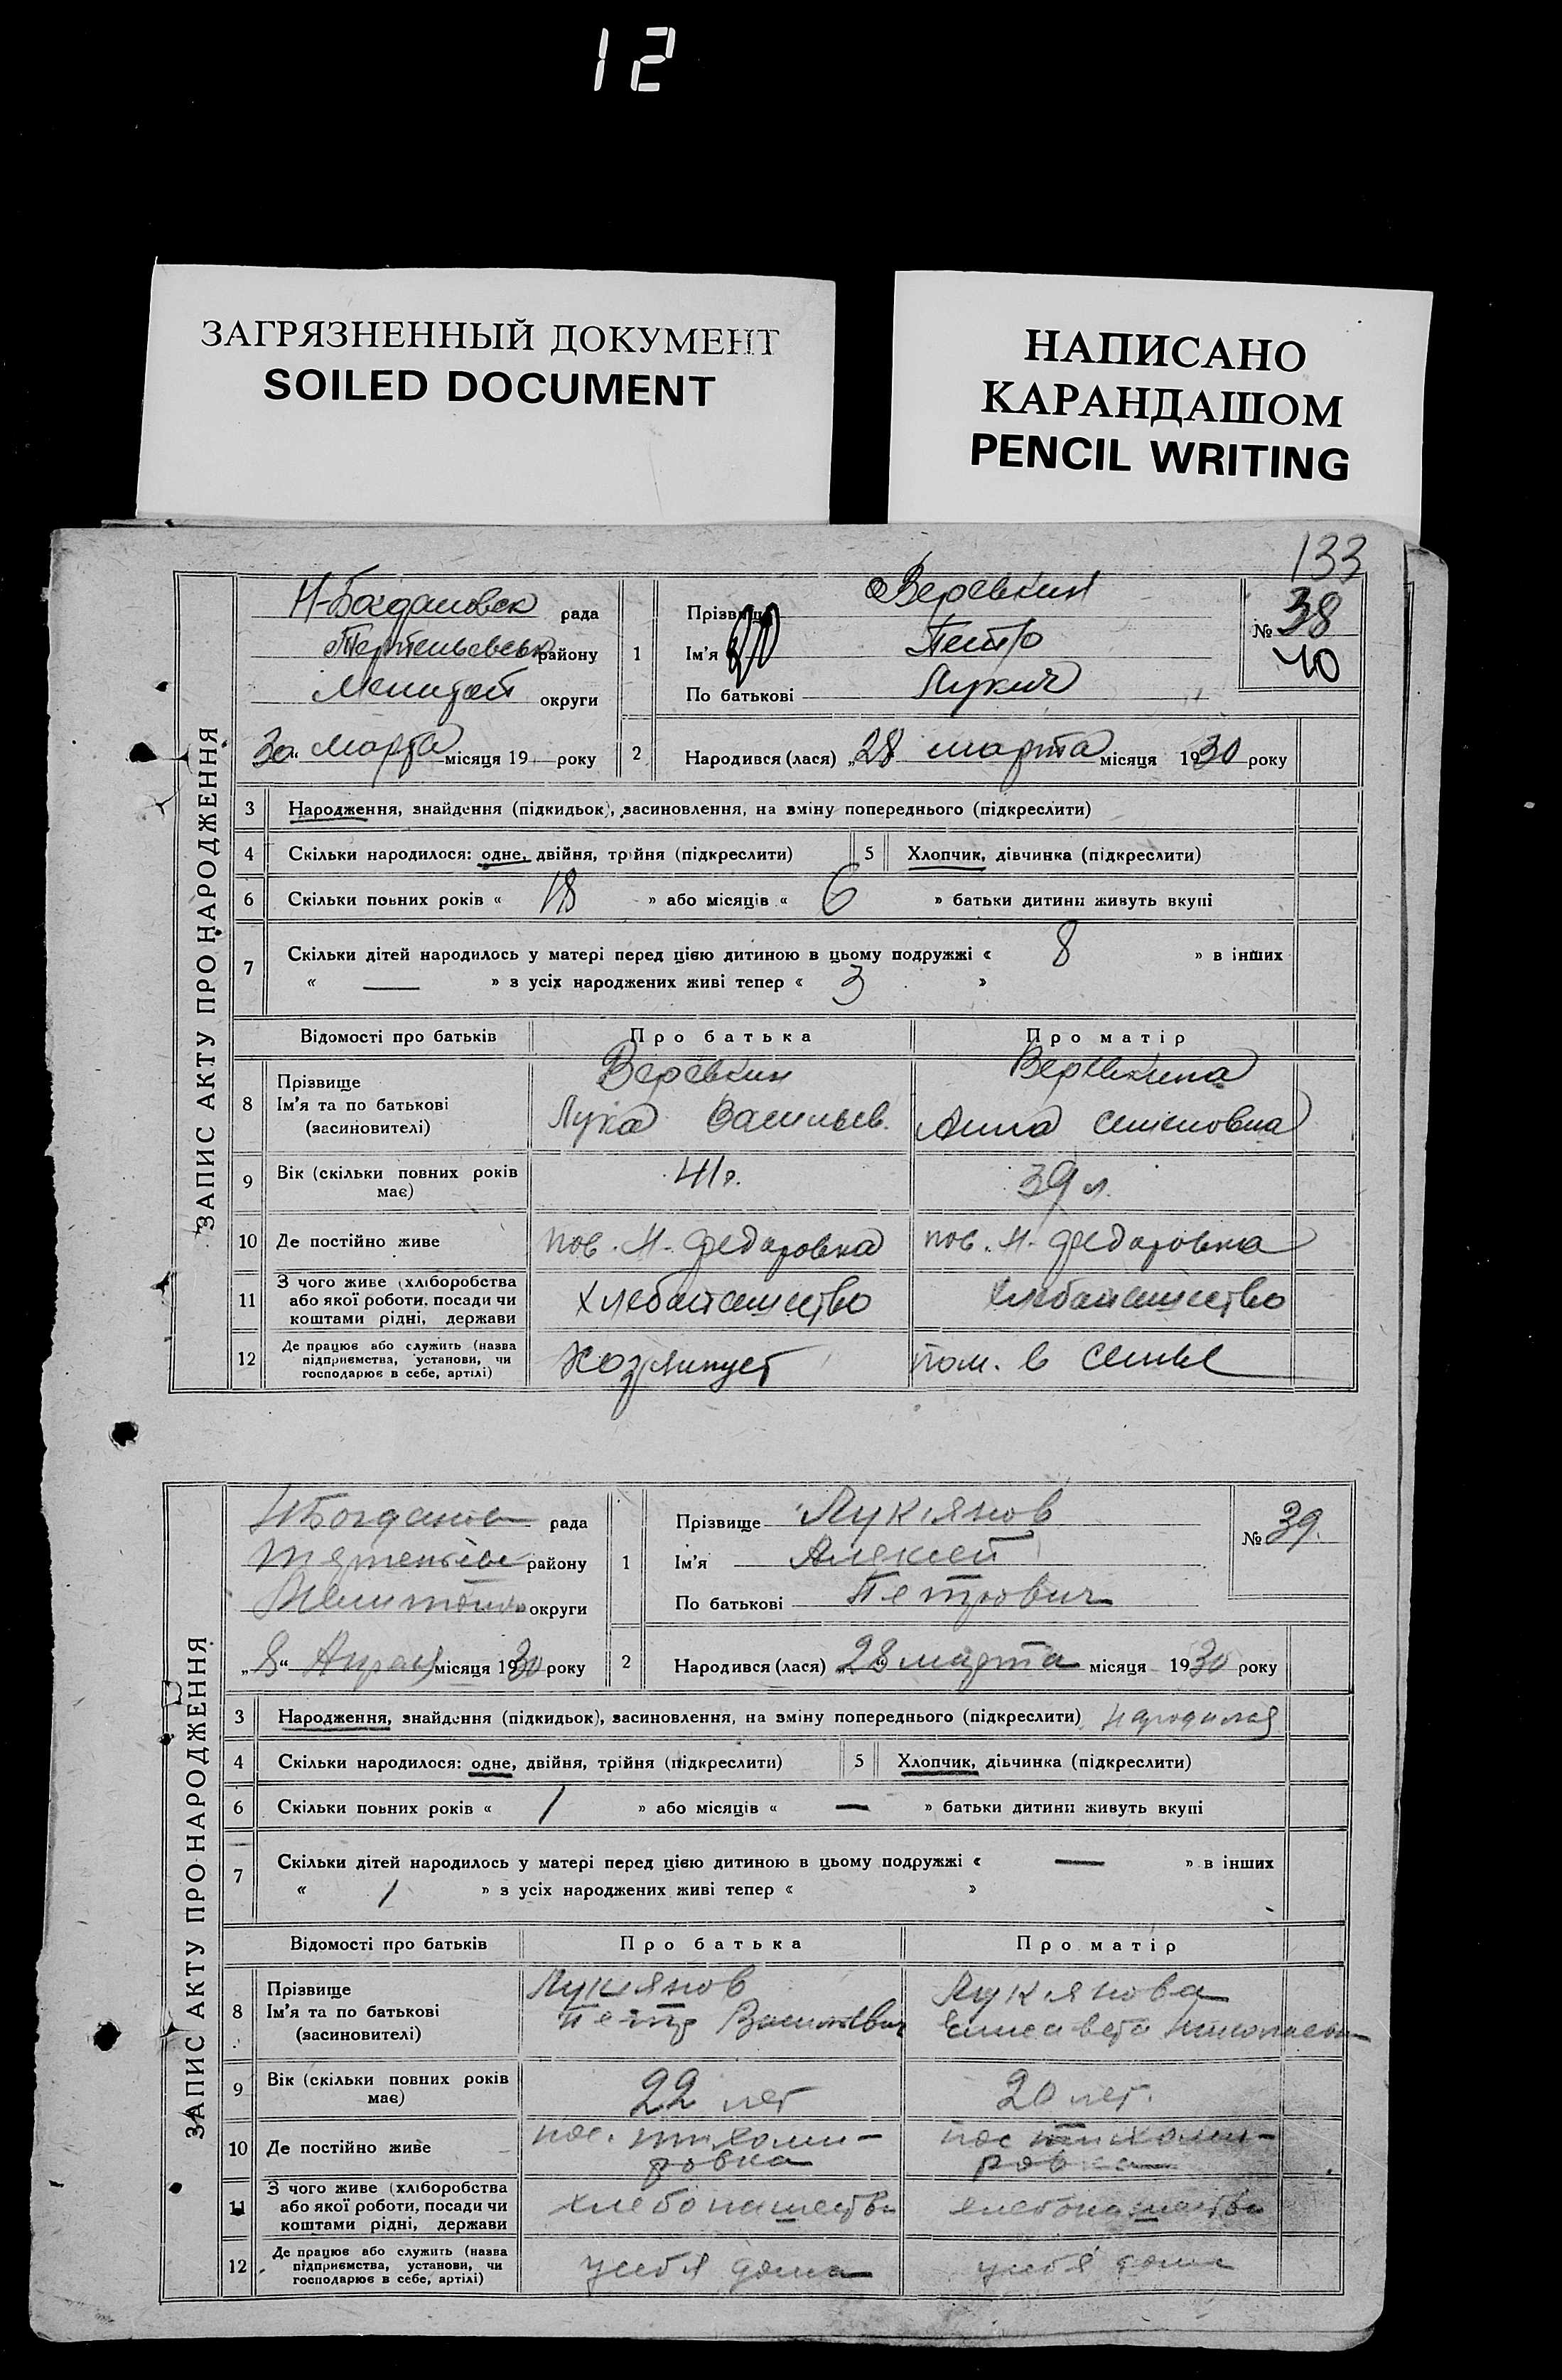 12
ЗАГРЯЗНЕННЫЙ ДОКУМЕНТ
SOILED DOCUMENT
НАПИСАНО
КАРАНДАШОМ
PENCIL WRITING
133
ЗАПИС АКТУ ПРО НАРОДЖЕННЯ
Н-Богдановск рада
району
округи
30 марта місяця 19 року
1 Прізвище Веревкин
Ім'я Петр
По батькові Лукич
№ 38
40
2 Народився (лася) „28 марта місяця 1930 року
3 Народження, знайдення (підкидьок), засиновлення, на зміну попереднього (підкреслити)
4 Скільки народилося: одне, двійня, трійня (підкреслити) 5 Хлопчик, дівчинка (підкреслити)
6 Скільки повних років « 18 » або місяців « 6 » батьки дитини живуть вкупі
7 Скільки дітей народилось у матері перед цією дитиною в цьому подружжі « 8 » в інших
« — » з усіх народжених живі тепер « 3 »
Відомості про батьків Про батька Про матір
8 Прізвище Веревкин Веревкина
Ім'я та по батькові Лука Васильев. Анна Семеновна
(засиновителі)
9 Вік (скільки повних років має) 41 г. 39 л.
10 Де постійно живе пос. Н-Федоровка пос. Н-Федоровка
11 З чого живе (хліборобства або якої роботи, посади чи коштами рідні, держави Хлебопашество Хлебопашество
12 Де працює або служить (назва підприємства, установи, чи господарює в себе, артілі) Хозяинует пом. в семье
ЗАПИС АКТУ ПРО НАРОДЖЕННЯ
Н Богданов рада
району
округи
„8“ Апреля місяця 1930 року
1 Прізвище Лукянов
Ім'я Алексей
По батькові Петрович
№ 39.
2 Народився (лася) 28 марта місяця 1930 року
3 Народження, знайдення (підкидьок), засиновлення, на зміну попереднього (підкреслити)
4 Скільки народилося: одне, двійня, трійня (підкреслити) 5 Хлопчик, дівчинка (підкреслити)
6 Скільки повних років « 1 » або місяців « — » батьки дитини живуть вкупі
7 Скільки дітей народилось у матері перед цією дитиною в цьому подружжі « — » в інших
« 1 » з усіх народжених живі тепер « »
Відомості про батьків Про батька Про матір
8 Прізвище Лукянов Лукянова
Ім'я та по батькові Петр Василевич Елисавета Николаевн
(засиновителі)
9 Вік (скільки повних років має) 22 лет 20 лет.
10 Де постійно живе пос. тихоми-ровка пос тихоми-ровка
11 З чого живе (хліборобства або якої роботи, посади чи коштами рідні, держави хлебопашество хлебопашество
12 Де працює або служить (назва підприємства, установи, чи господарює в себе, артілі) у себя дома у себя дома